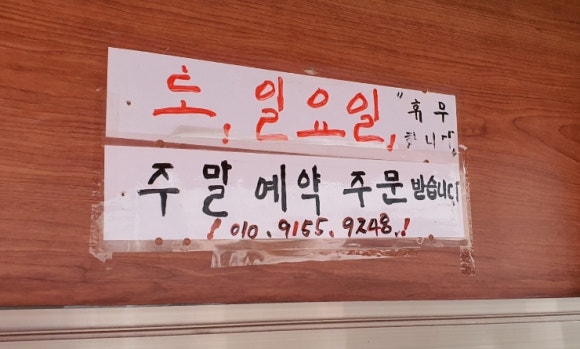 토, 일요일, "휴무
합니다.
주말 예약 주문 받습니다
! 010.9155.9248.!